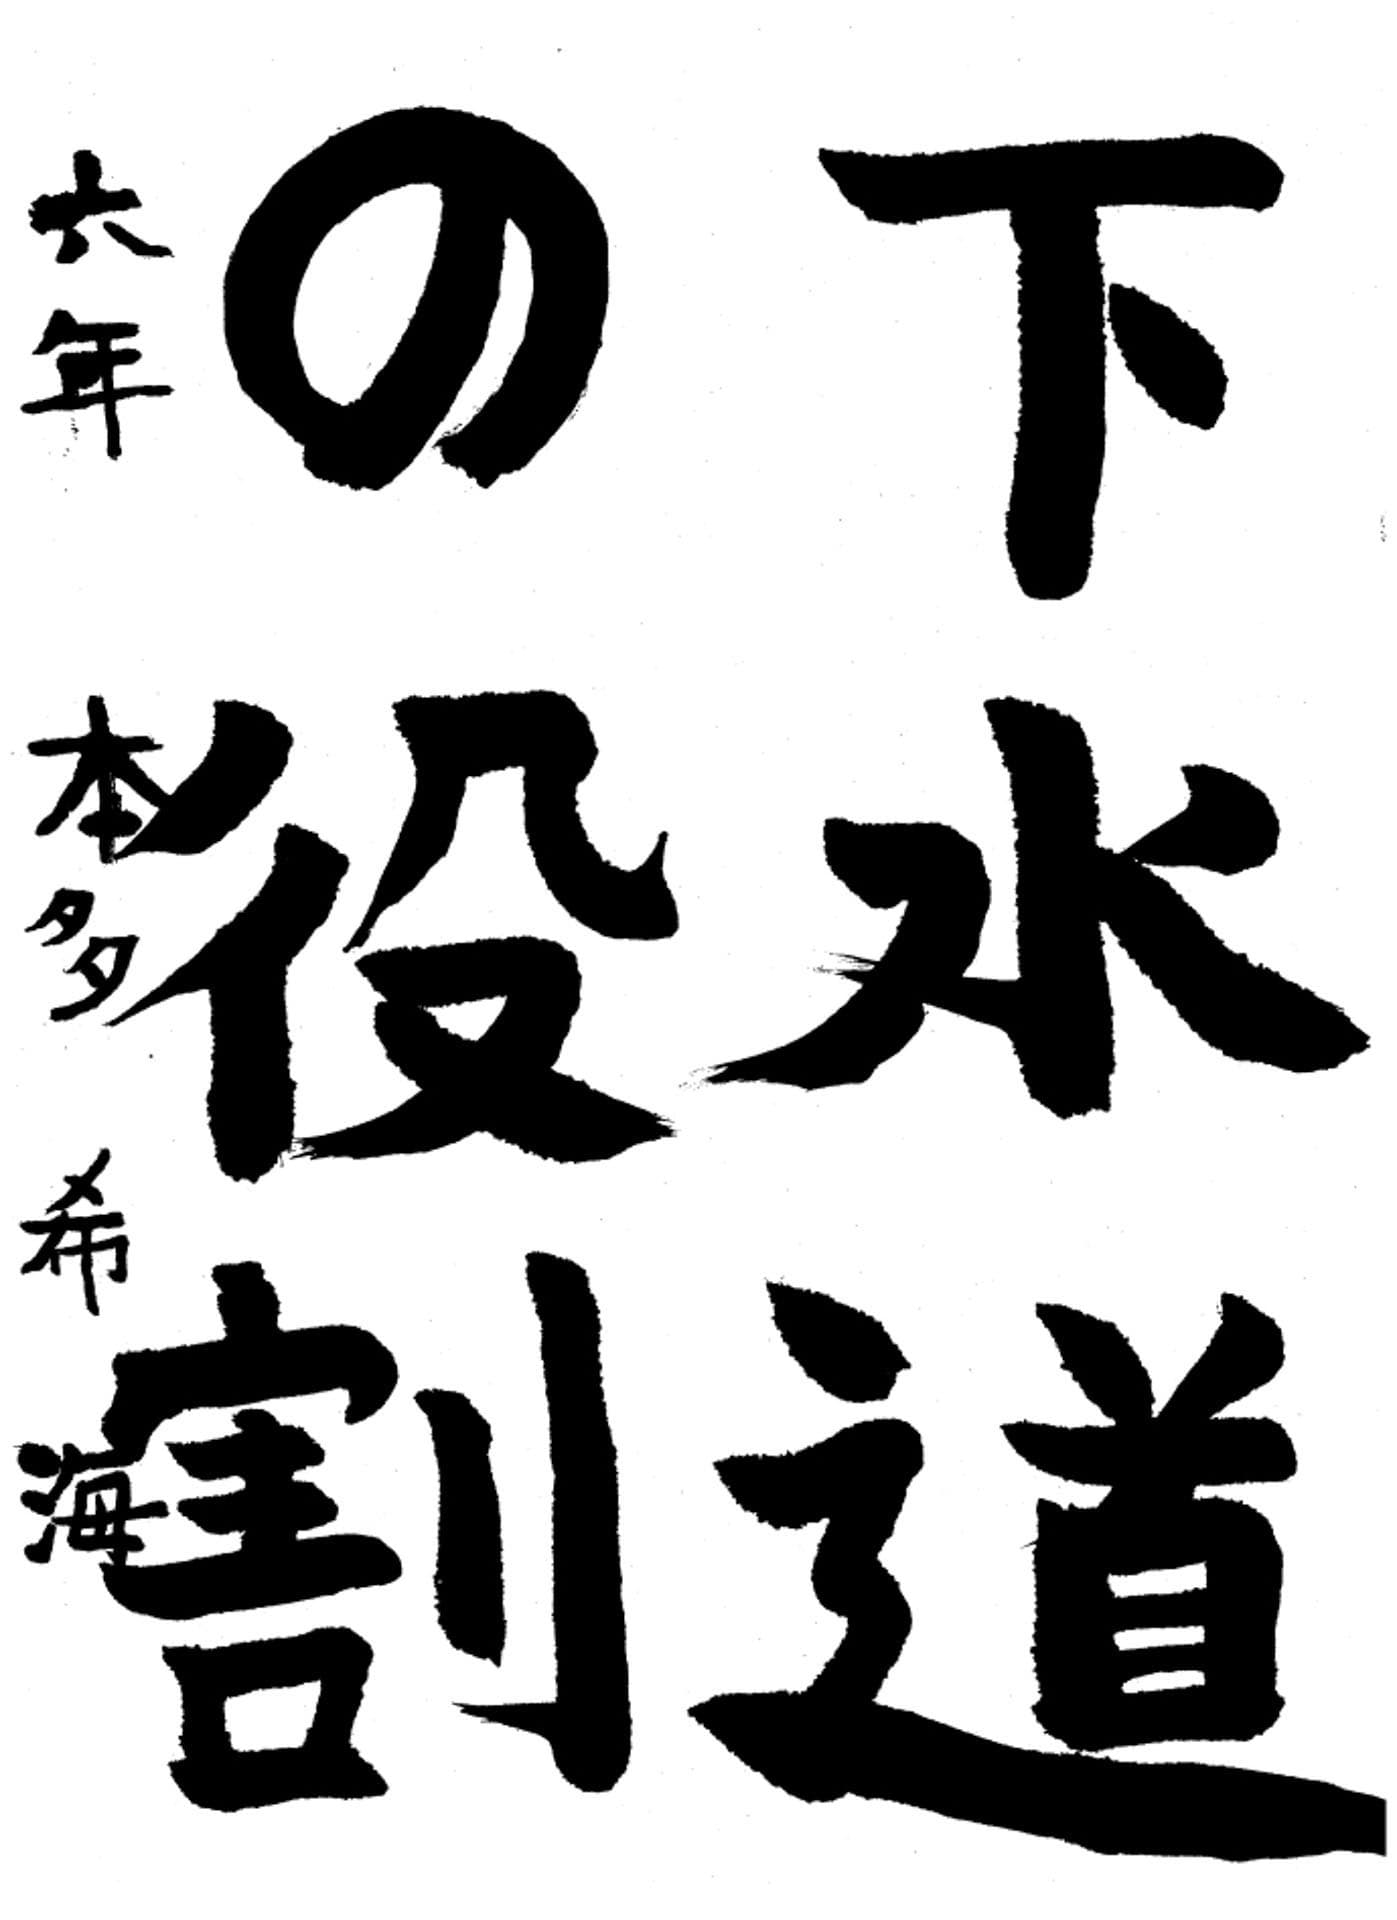 下水道
の役割
六年 本多 希海